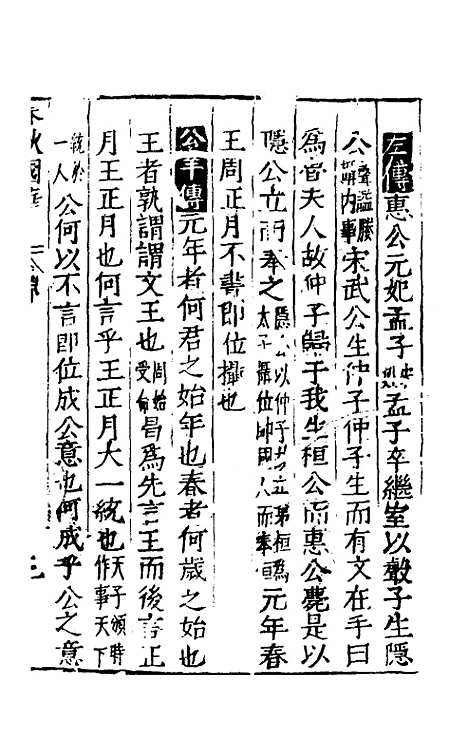 左傳惠公元妃孟子宋姓孟子卒繼室以聲子生隱
公聲謚媵婣內事宋武公生仲子仲子生而有文在手曰
爲魯夫人故仲子歸于我生桓公而惠公薨是以
隱公立而奉之隱公以仲子故立弟桓爲太子攝位帥國人而奉桓元年春
王周正月不書卽位攝也
公羊傳元年者何君之始年也春者何歲之始也
王者孰謂謂文王也周始受命曷爲先言王而後言正
月王正月也何言乎王正月大一統也天子頒時作事天下
統於一人公何以不言卽位成公意也何成乎公之意
春秋國華